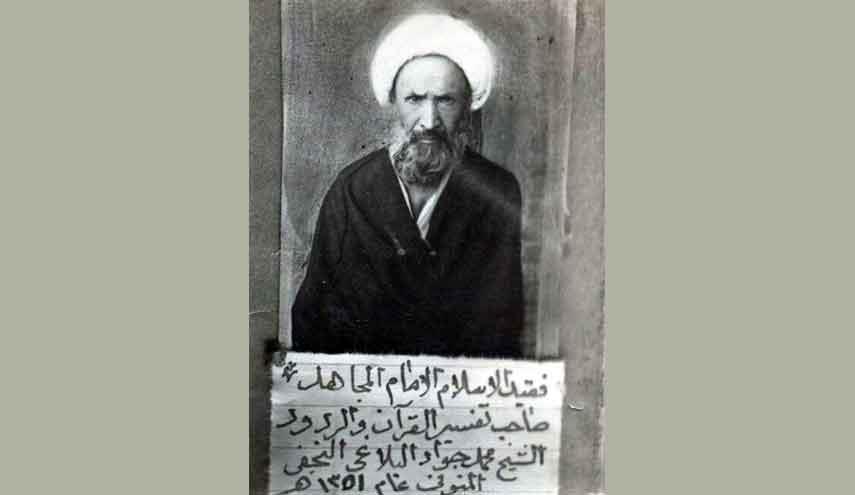 فقيد الاسلام الامام المجاهد
صاحب تفسير القرآن والردود
الشيخ محمد جواد البلاغي النجفي
المتوفى عام ١٣٥١ هـ